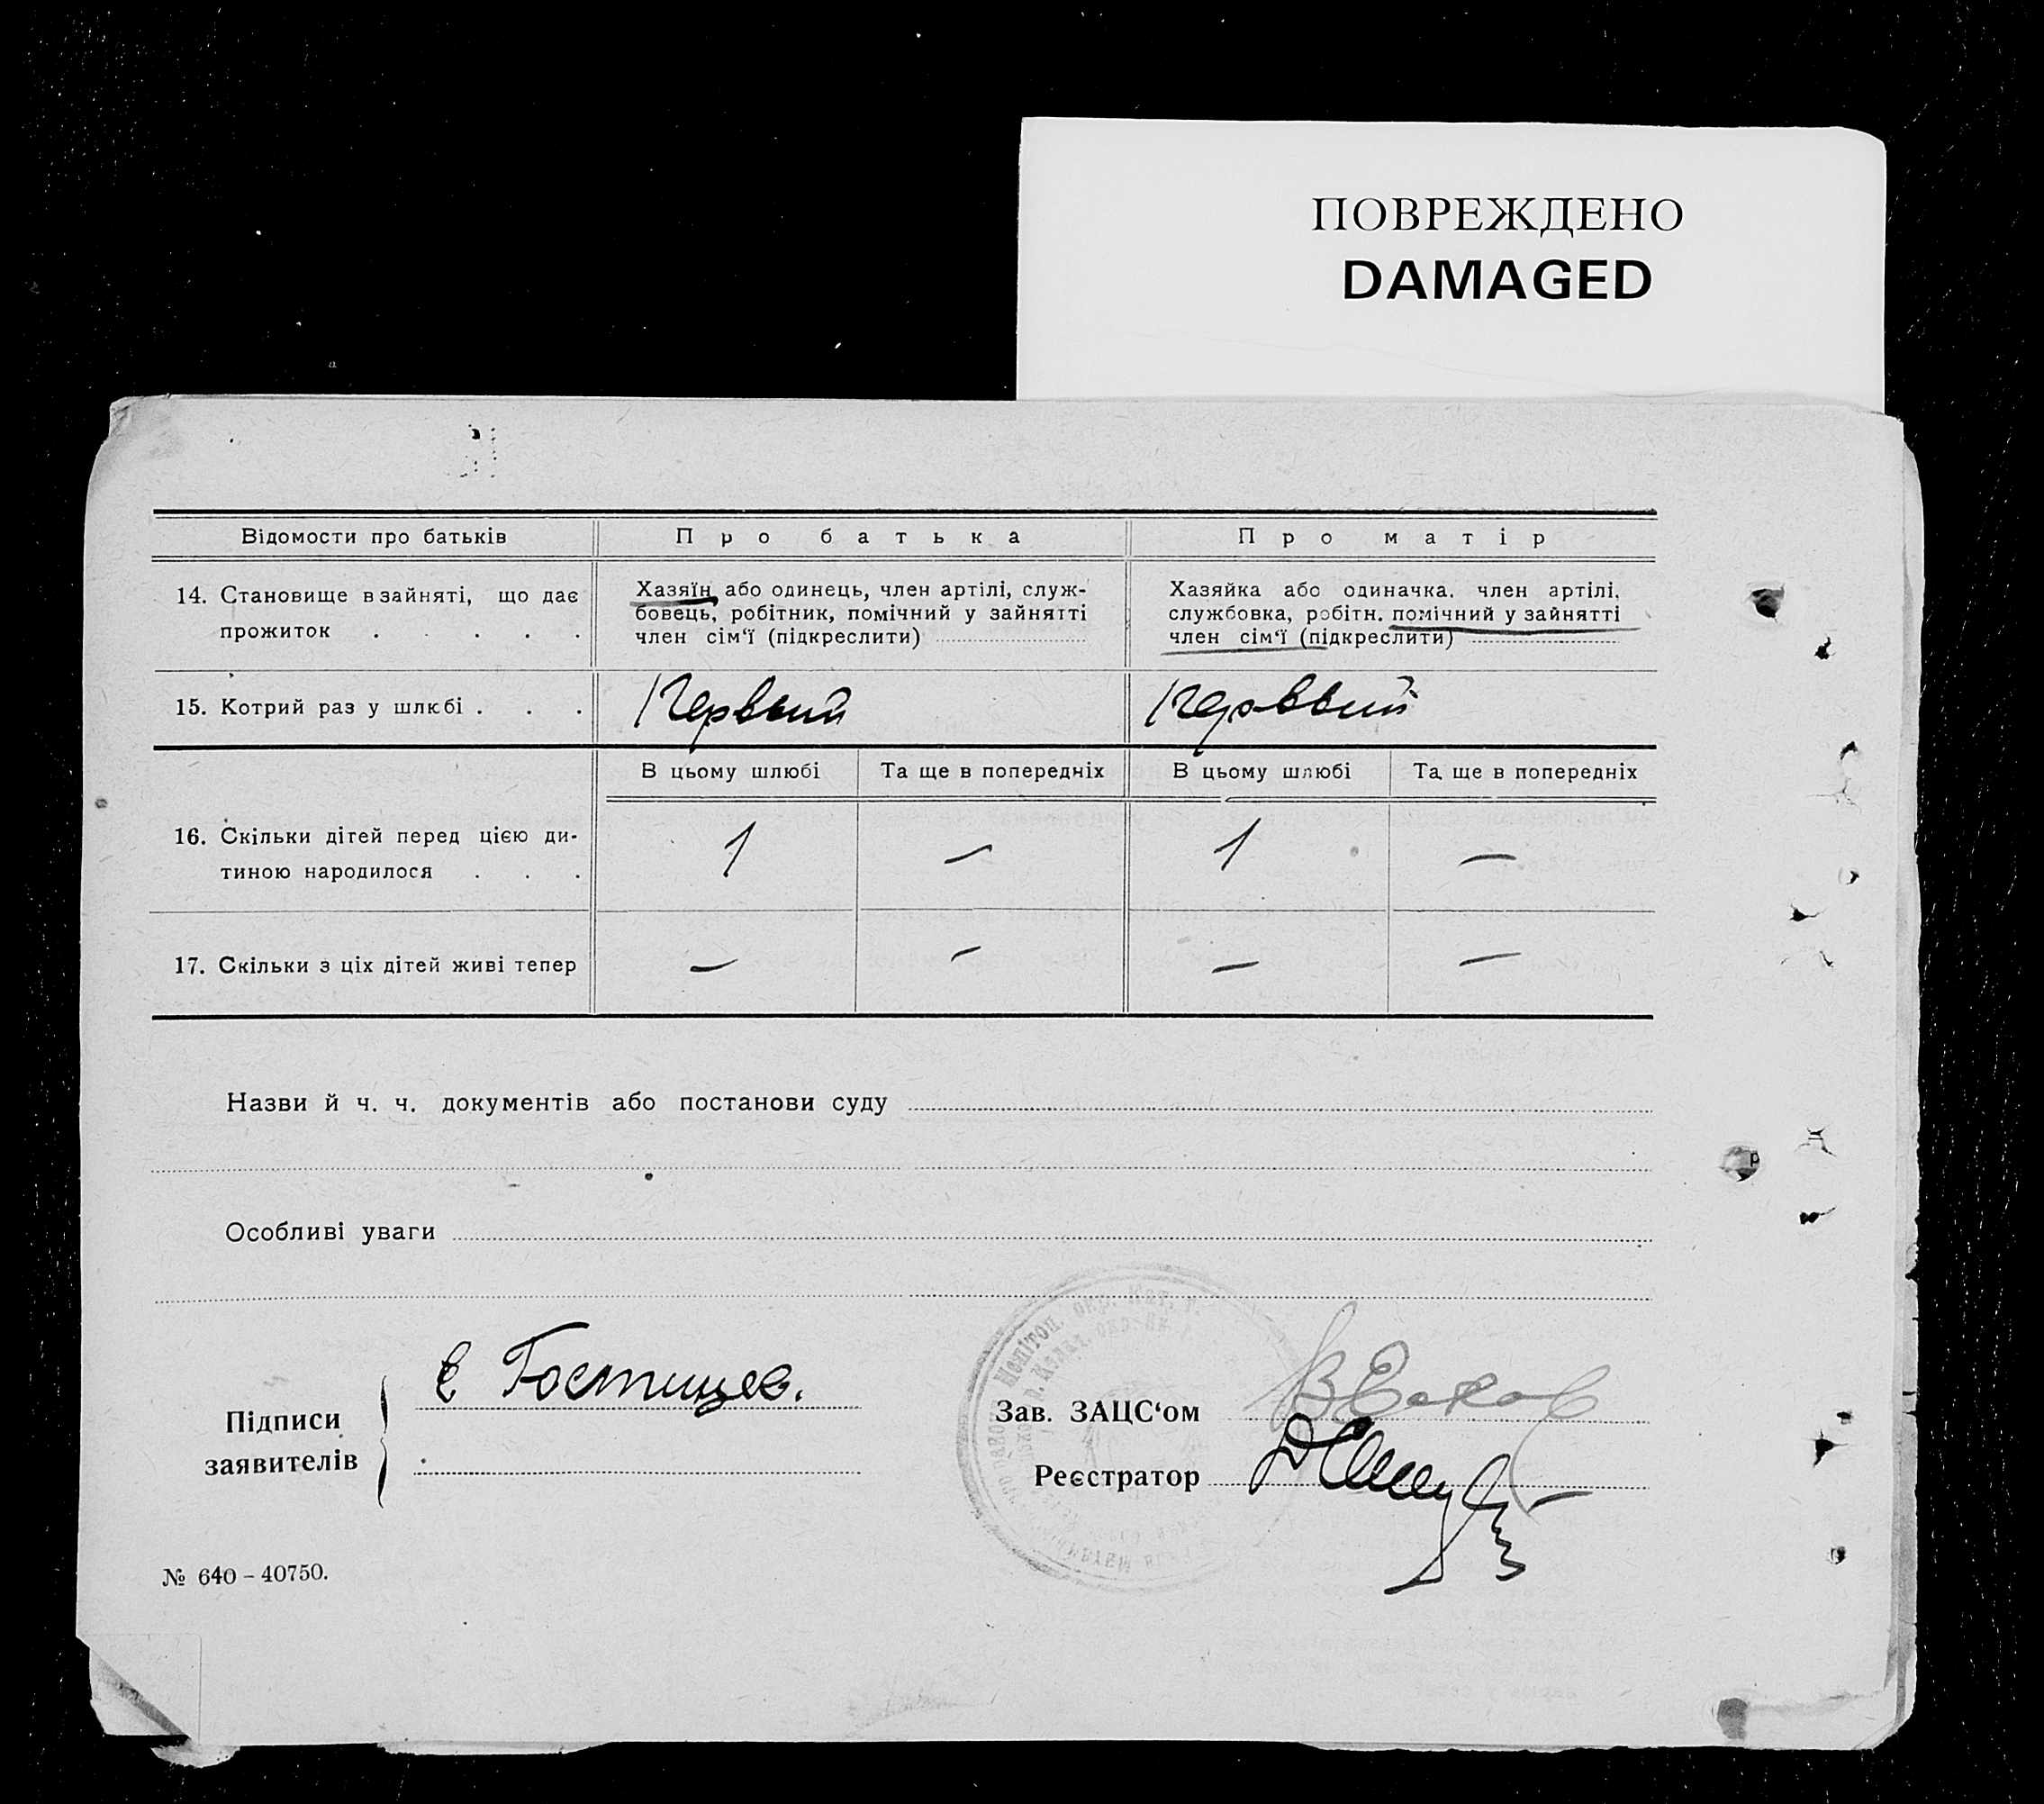 ПОВРЕЖДЕНО
DAMAGED
Відомости про батьків
Про батька
Про матір
14. Становище в зайняті, що дає
прожиток . . . . .
Хазяїн, або одинець, член артілі, служ-
бовець, робітник, помічний у зайнятті
член сім‘ї (підкреслити)
Хазяйка або одиначка, член артілі,
службовка, робітн. помічний у зайнятті
член сім‘ї (підкреслити)
15. Котрий раз у шлюбі . . .
Первый
Первый
В цьому шлюбі
Та ще в попередніх
В цьому шлюбі
Та ще в попередніх
16. Скільки дітей перед цією ди-
тиною народилося . . .
1 — 1 —
17. Скільки з ціх дітей живі тепер
— — — —
Назви й ч. ч. документів або постанови суду
Особливі уваги
Підписи
заявителів
Е Гостищев.
Зав. ЗАЦС‘ом
Реєстратор
№ 640 – 40750.